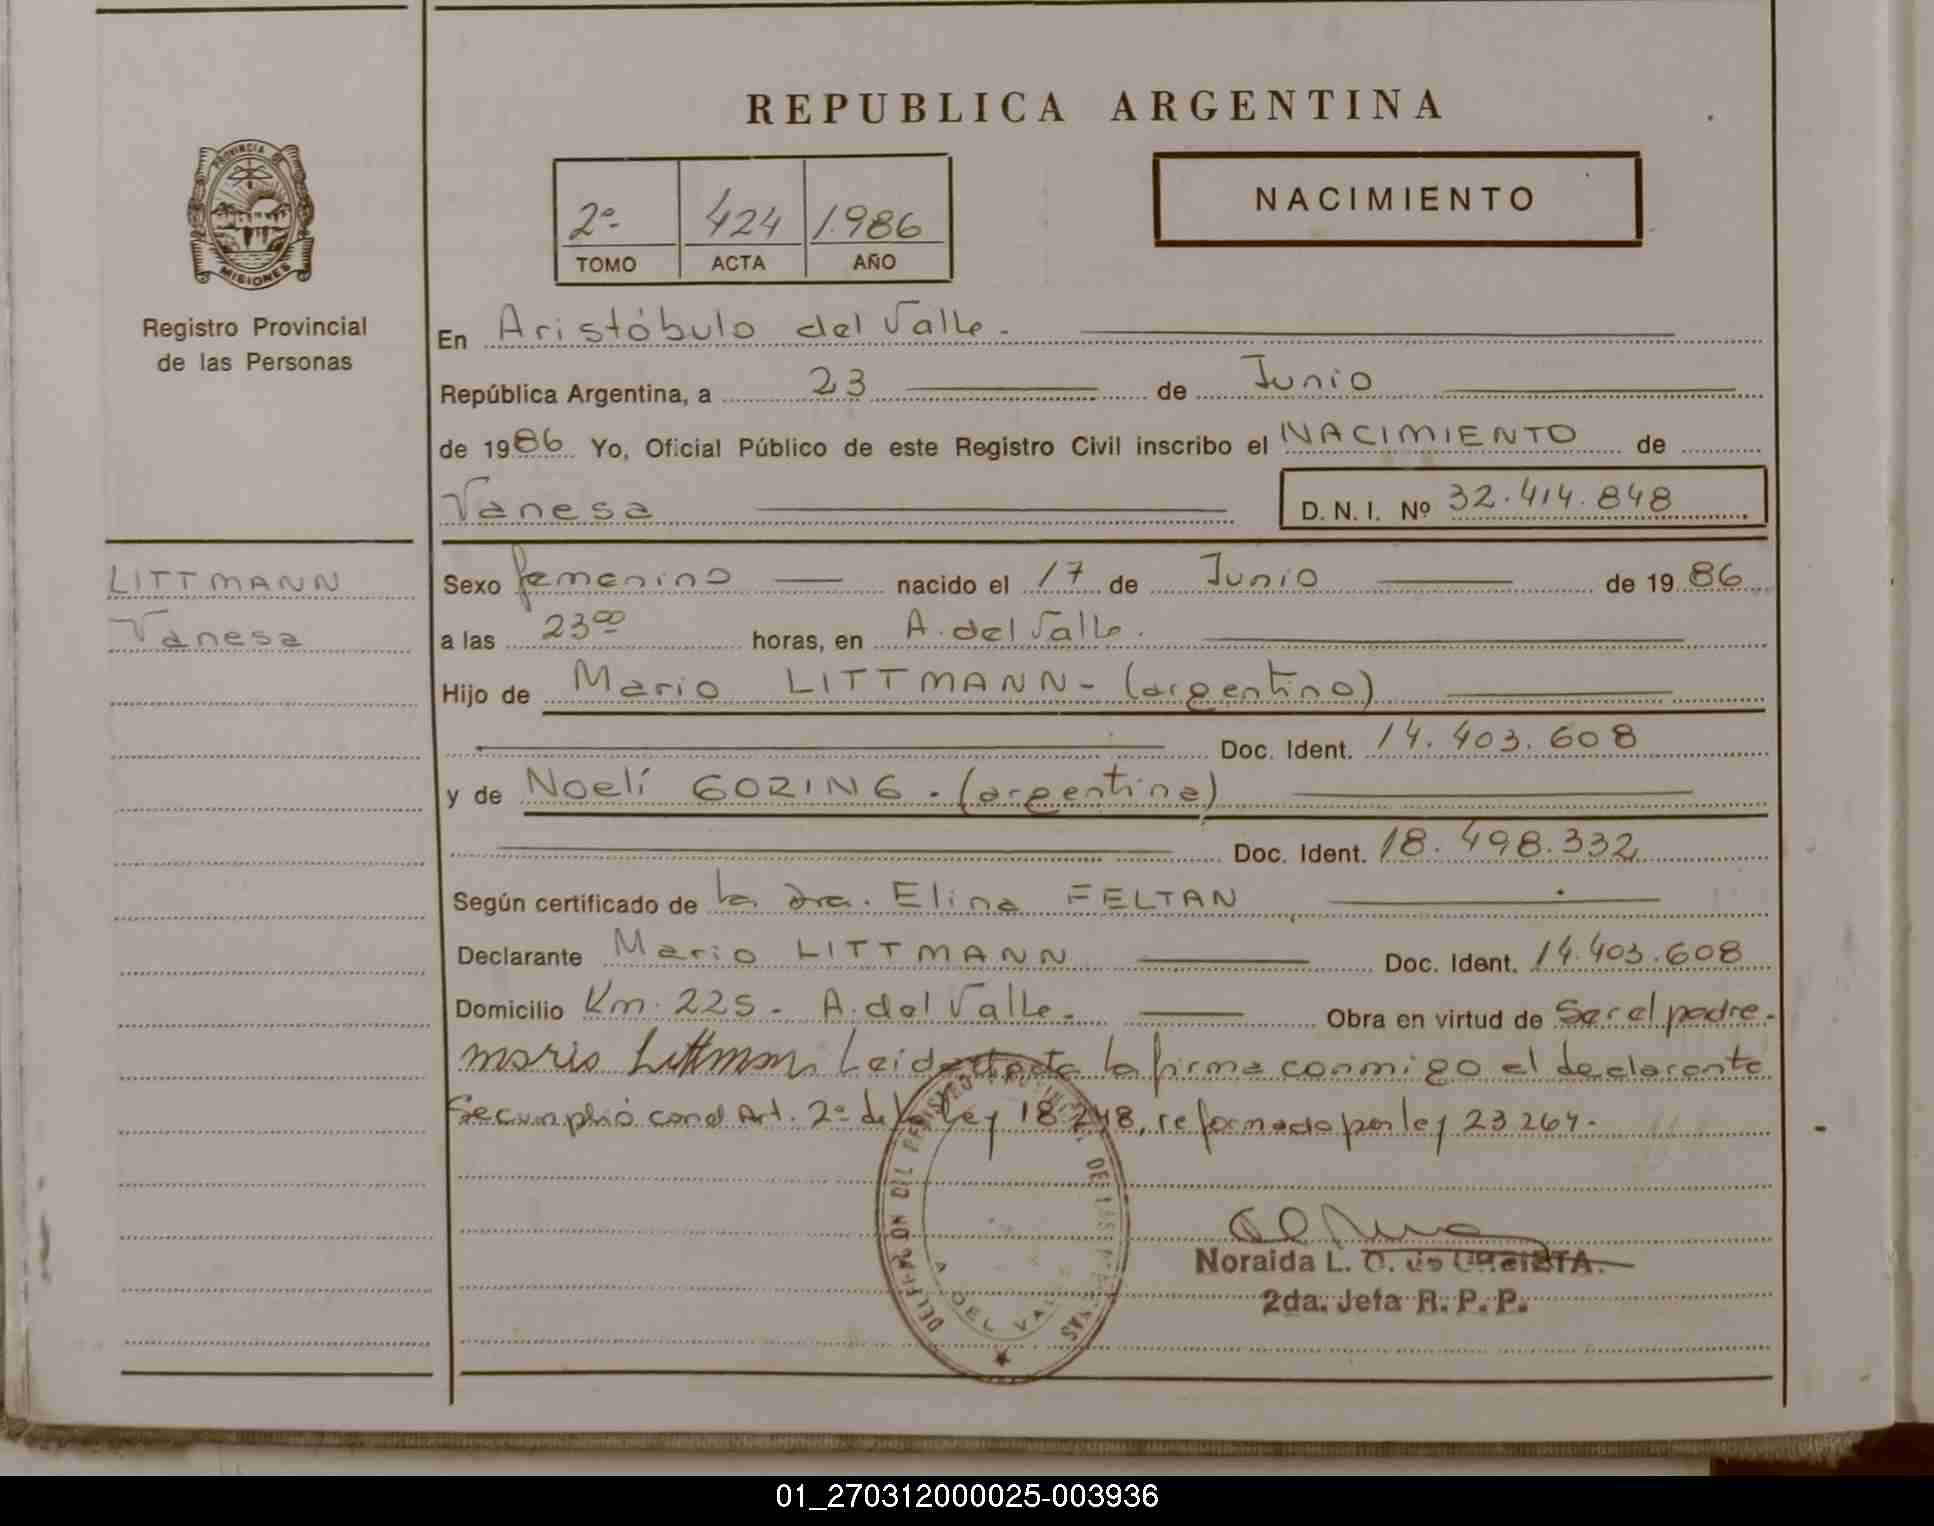 REPUBLICA ARGENTINA
PROVINCIA DE
MISIONES
Registro Provincial
de las Personas
2º 424 1.986
TOMO ACTA AÑO
NACIMIENTO
En Aristóbulo del Valle.
República Argentina, a 23 de Junio
de 1986 Yo, Oficial Público de este Registro Civil inscribo el NACIMIENTO de
Vanesa D. N. I. Nº 32.414.848
LITTMANN
Vanesa
Sexo femenino nacido el 17 de Junio de 1986
a las 23ºº horas, en A. del Valle.
Hijo de Mario LITTMANN- (argentino)
Doc. Ident. 14.403.608
y de Noelí GORING. (argentina)
Doc. Ident. 18.498.332
Según certificado de la Dra. Elina FELTAN
Declarante Mario LITTMANN Doc. Ident. 14.403.608
Domicilio Km. 225- A. del Valle. Obra en virtud de Ser el padre.
Leida la firma conmigo el declarante
Se cumplió con el Art. 2º de la Ley 18.248, reformado por ley 23264.
A. DEL VALLE
Noraida L.
2da. Jefa R. P. P.
01_270312000025-003936